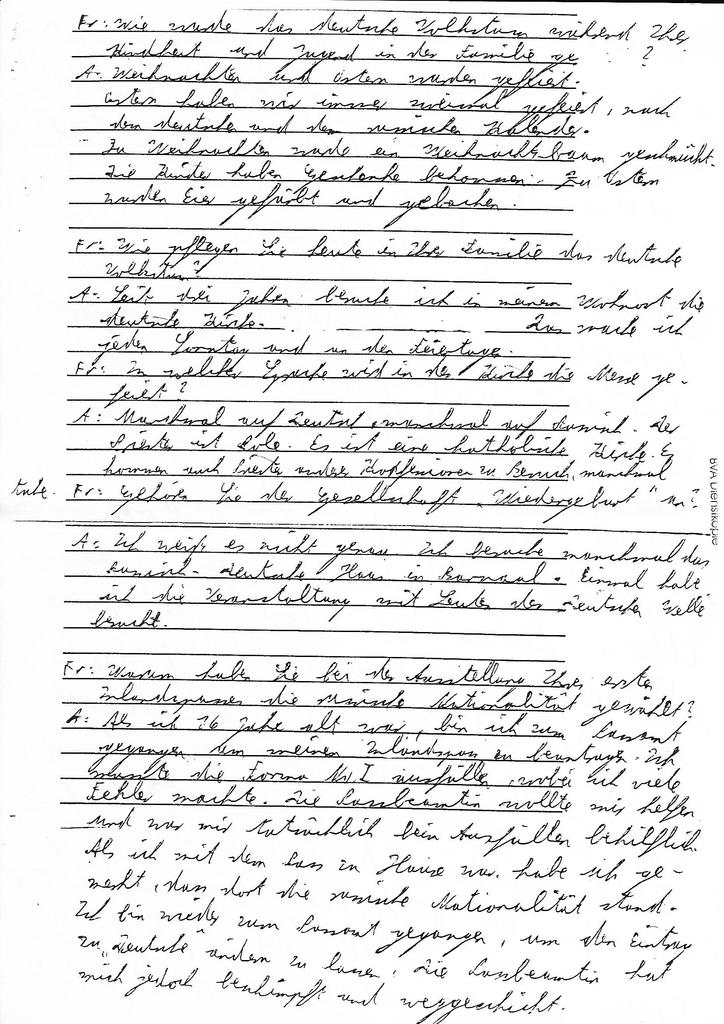 Fr: Wie wurde das deutsche Volkstum während Ihrer
Kindheit und Jugend in der Familie ge ?
A: Weihnachten und Ostern wurden gefeiert.
Ostern haben wir immer zweimal gefeiert, nach
dem deutschen und dem russischen Kalender.
Zu Weihnachten wurde ein Weihnachtsbaum geschmückt.
Die Kinder haben Geschenke bekommen. Zu Ostern
wurden Eier gefärbt und gebacken.
Fr: Wie pflegen Sie heute in Ihrer Familie das deutsche
Volkstum?
A: Seit drei Jahren besuche ich in meinem Wohnort die
deutsche Kirche. Das mache ich
jeden Sonntag und an den Feiertagen.
Fr: In welcher Sprache wird in der Kirche die Messe ge-
feiert?
A: Manchmal auf Deutsch, manchmal auf Russisch. Der
Priester ist Pole. Es ist eine katholische Kirche. Es
kommen auch Priester anderer Konfessionen zu Besuch, manchmal
Fr: Gehören Sie der Gesellschaft „Wiedergeburt" an?
BVA Dienstkopie
A: Ich weiß es nicht genau. Ich besuche manchmal das
Russisch-Deutsche Haus in Barnaul. Einmal habe
ich die Veranstaltung mit Leuten der Deutschen Welle
besucht.
Fr: Warum haben Sie bei der Ausstellung Ihres ersten
Inlandspasses die russische Nationalität gewählt?
A: Als ich 16 Jahre alt war, bin ich zum Passamt
gegangen um meinen Inlandspass zu beantragen. Ich
musste die Forma Nr. I ausfüllen, wobei ich viele
Fehler machte. Die Passbeamtin wollte mir helfen
und war mir tatsächlich beim Ausfüllen behilflich.
Als ich mit dem Pass zu Hause war, habe ich ge-
merkt, dass dort die russische Nationalität stand.
Ich bin wieder zum Passamt gegangen, um den Eintrag
zu „Deutsche" ändern zu lassen. Die Passbeamtin hat
mich jedoch beschimpft und weggeschickt.